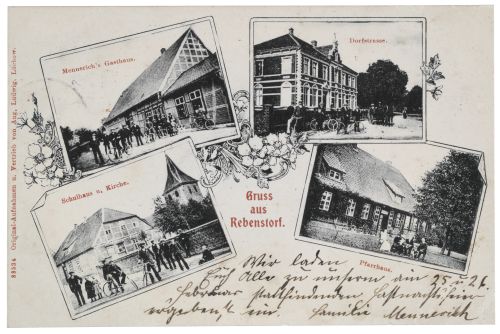 Mennerich's Gasthaus.
Dorfstrasse.
Schulhaus u. Kirche.
Gruss
aus
Rebenstorf.
Pfarrhaus.
Wir laden
Euch Alle zu unserm am 25 u 26.
Februar stattfindenden Fastnachtsfeier
ergebenst ein. Familie Mennerich
83534 Original-Aufnahmen u. Vertrieb von Aug. Ludwig, Lüchow.